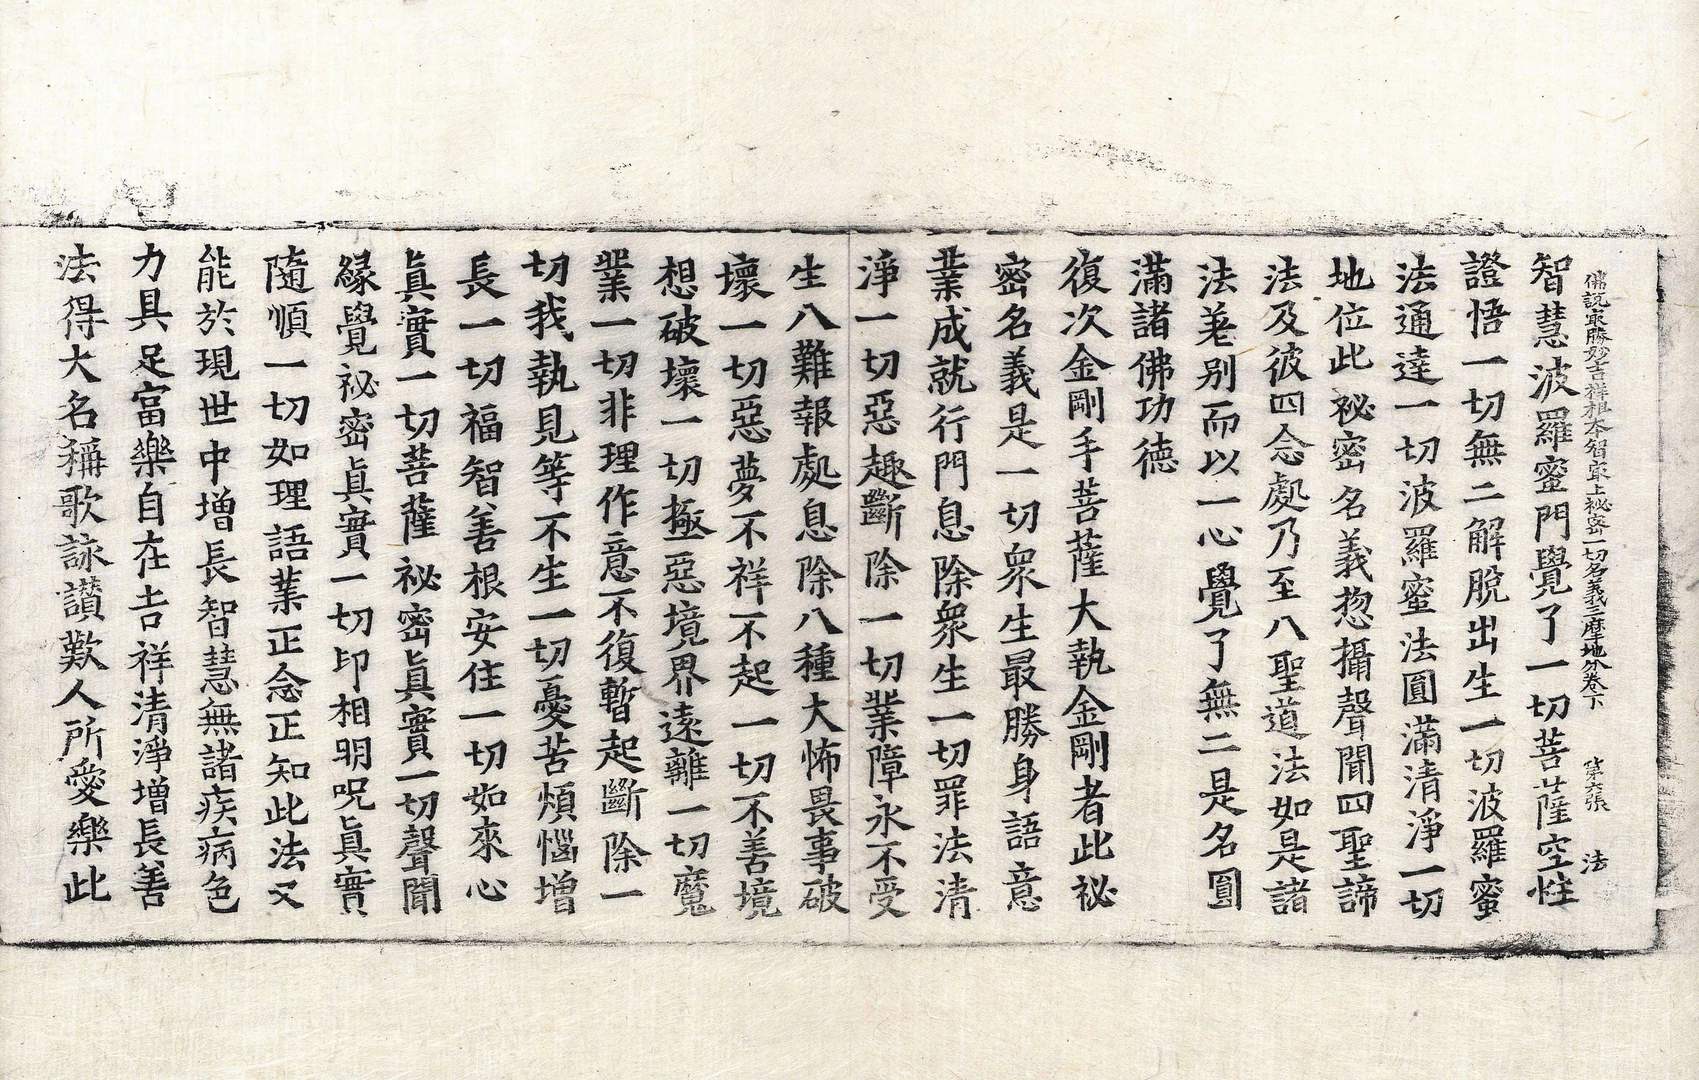 佛說最勝妙吉祥根本智最上秘密一切名義三摩地分卷下 第六張 法
智慧波羅蜜門覺了一切菩薩空性
證悟一切無二解脫出生一切波羅蜜
法通達一切波羅蜜法圓滿清淨一切
地位此祕密名義惣攝聲聞四聖諦
法及彼四念處乃至八聖道法如是諸
法差別而以一心覺了無二是名圓
滿諸佛功德
復次金剛手菩薩大執金剛者此祕
密名義是一切衆生最勝身語意
業成就行門息除衆生一切罪法清
淨一切惡趣斷除一切業障永不受
生八難報處息除八種大怖畏事破
壞一切惡夢不祥不起一切不善境
想破壞一切極惡境界遠離一切魔
業一切非理作意不復暫起斷除一
切我執見等不生一切憂苦煩惱增
長一切福智善根安住一切如來心
眞實一切菩薩祕密眞實一切聲聞
緣覺祕密眞實一切印相明呪眞實
隨順一切如理語業正念正知此法又
能於現世中增長智慧無諸疾病色
力具足富樂自在吉祥清淨增長善
法得大名稱歌詠讚歎人所愛樂此